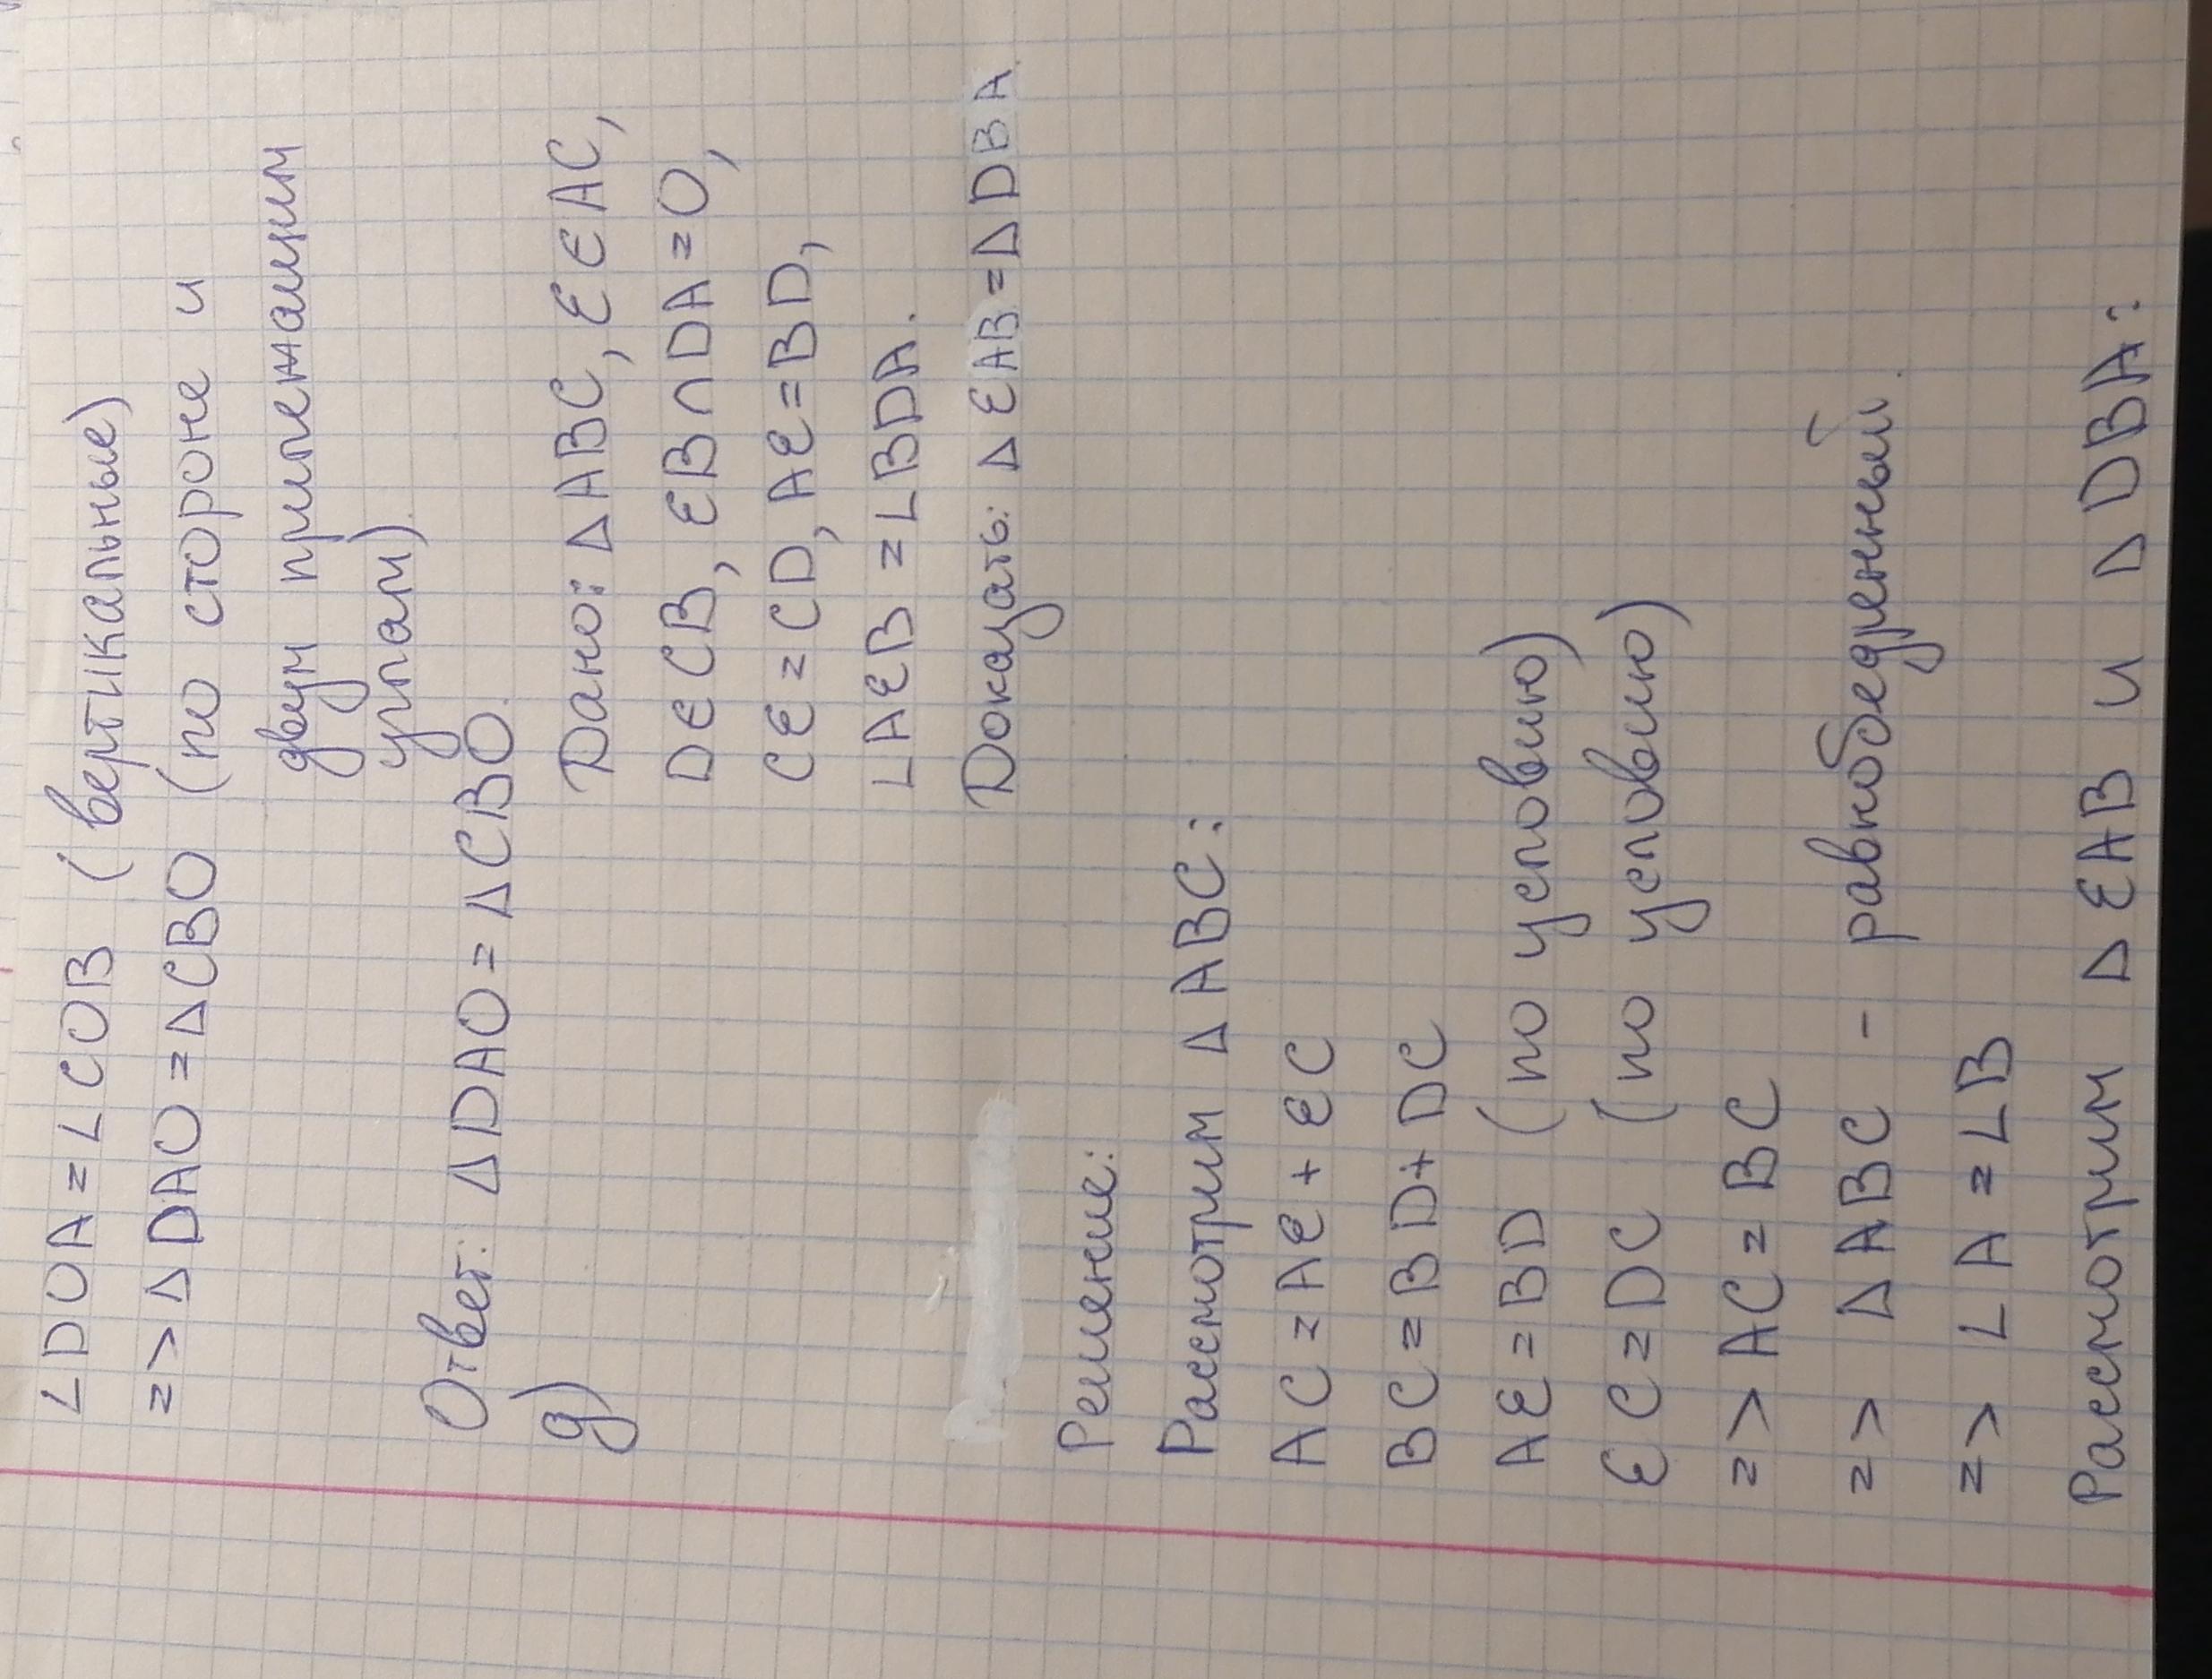 ∠DOA=∠COB (вертикальные)
=> ΔDAO=ΔCBO (по стороне и
двум прилежащим
углам)
Ответ: ΔDAO=ΔCBO.
д)
Дано: ΔABC, E∈AC,
D∈CB, EB∩DA=O,
CE=CD, AE=BD,
∠AEB=∠BDA.
Доказать: ΔEAB=ΔDBA
Решение:
Рассмотрим ΔABC:
AC=AE+EC
BC=BD+DC
AE=BD (по условию)
EC=DC (по условию)
=> AC=BC
=> ΔABC - равнобедренный.
=> ∠A=∠B
Рассмотрим ΔEAB и ΔDBA: